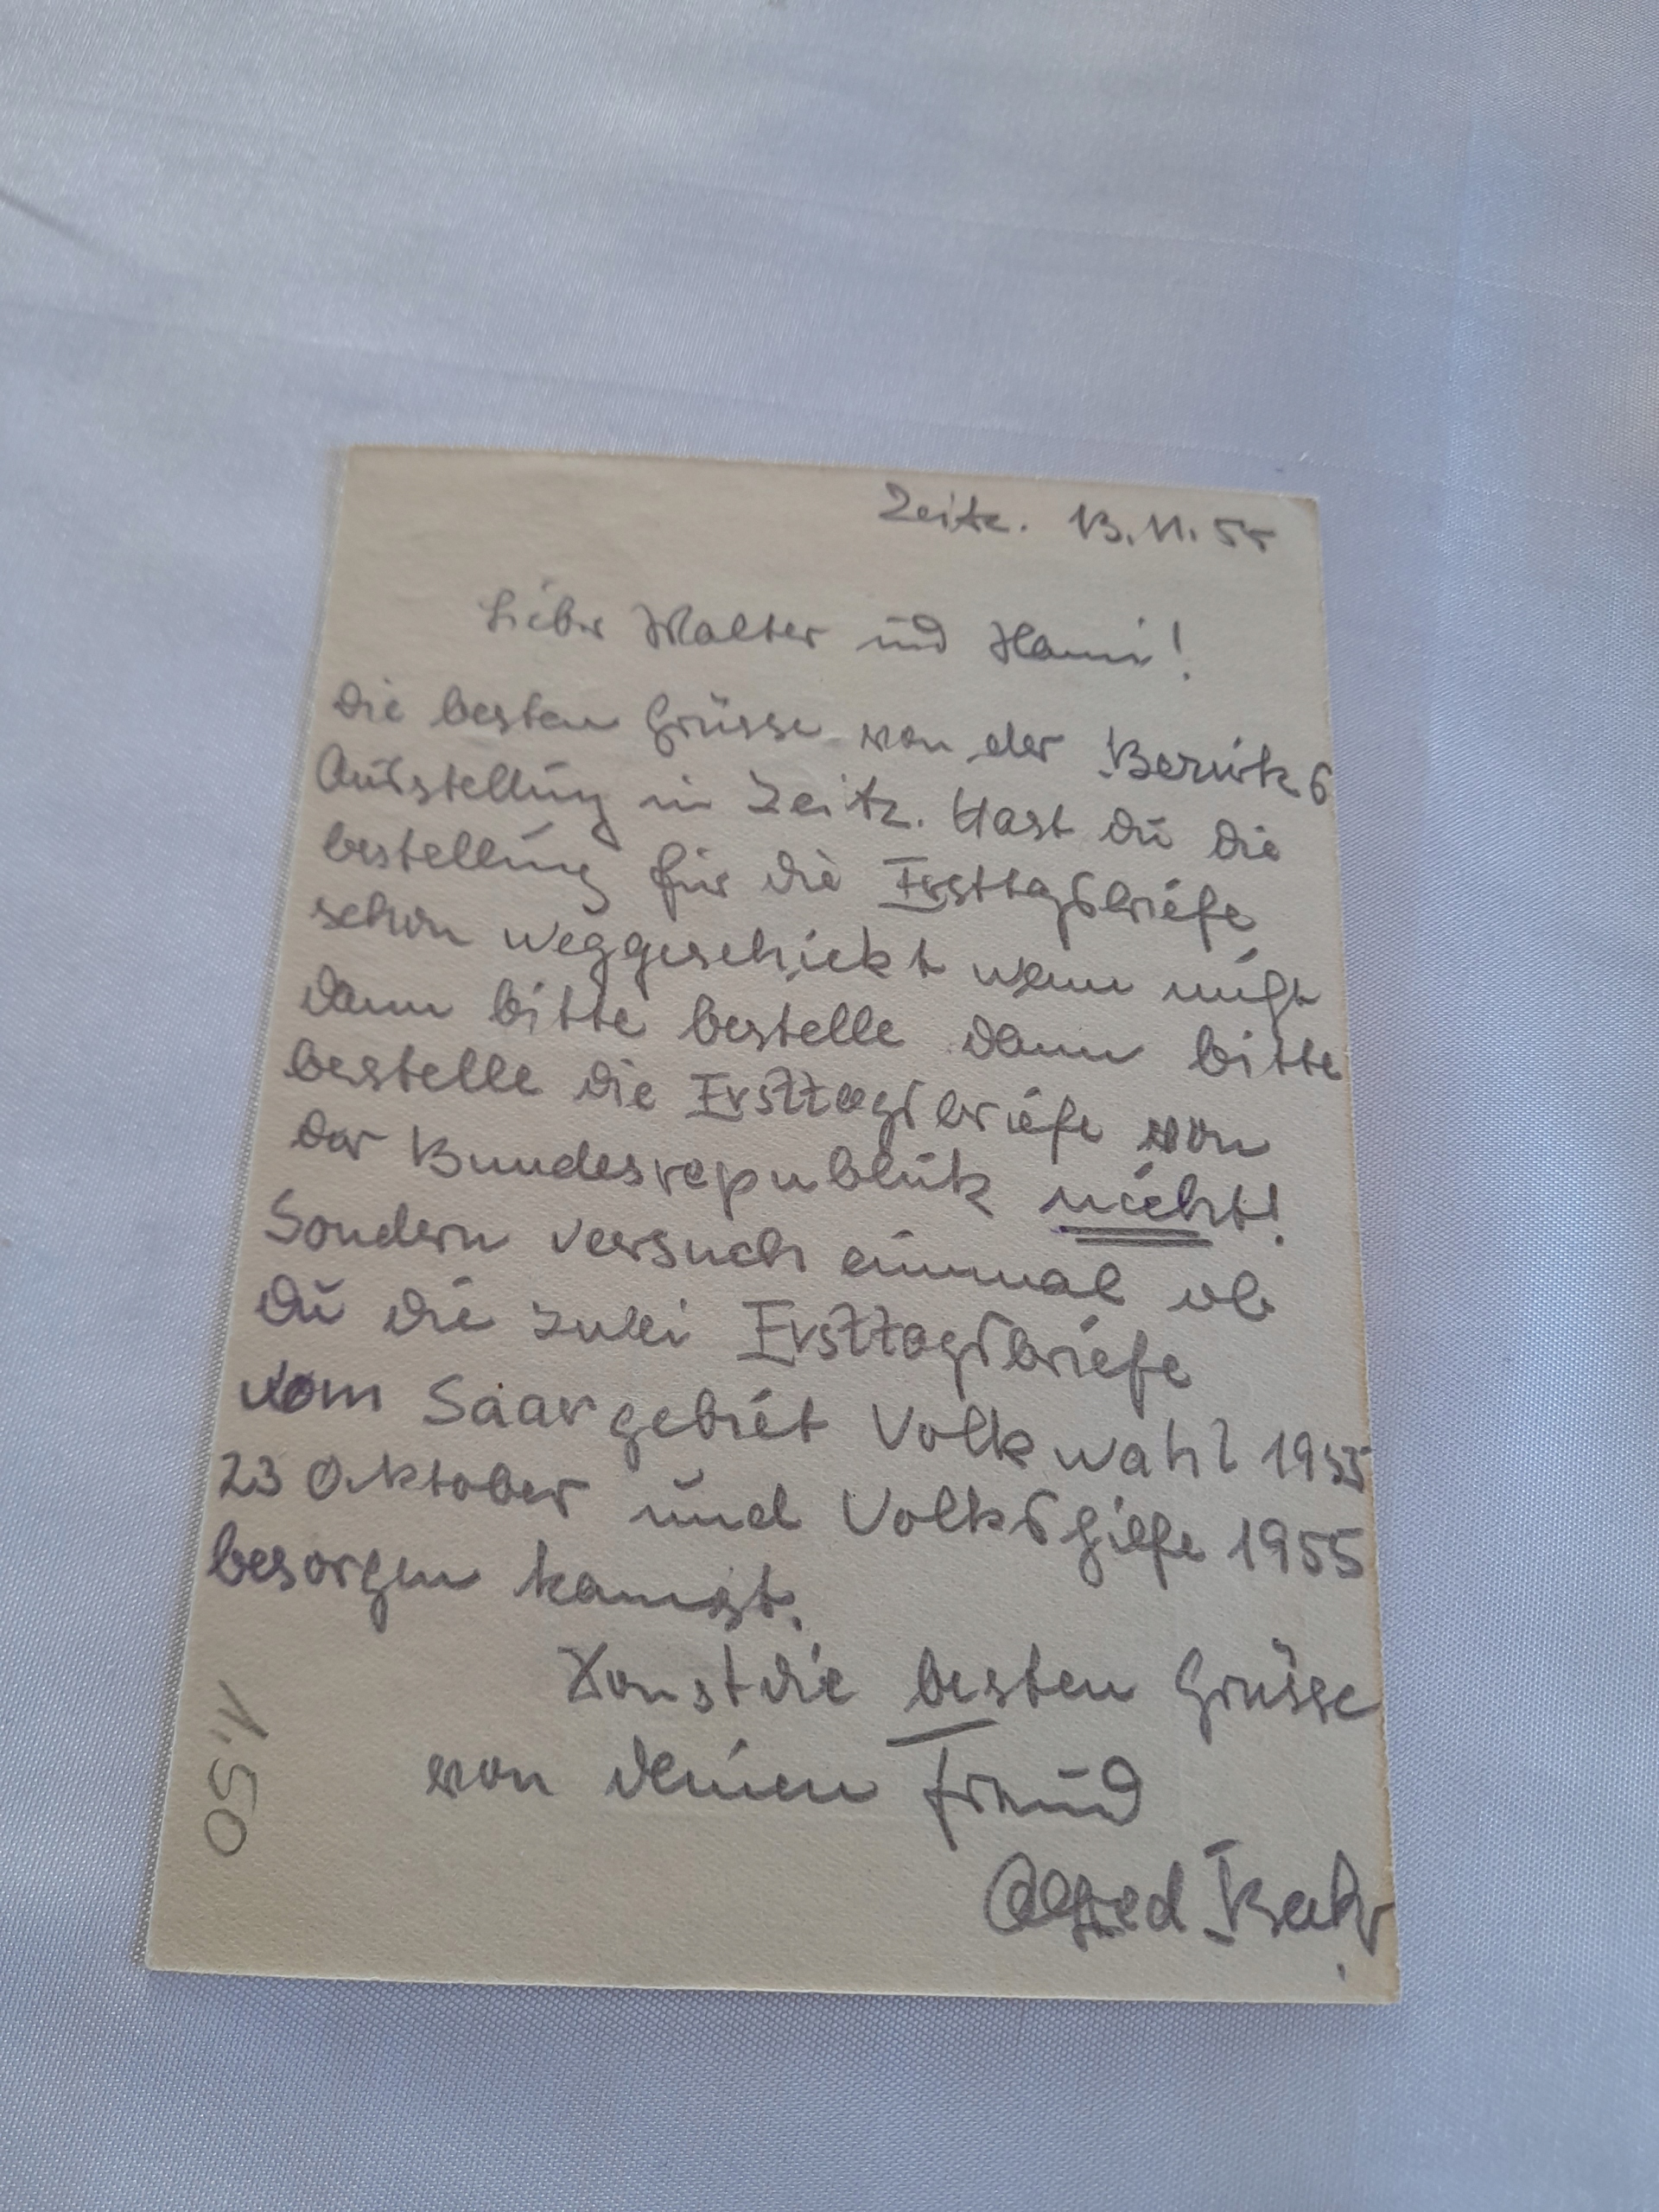 Zeitz. 13.11.55
Lieber Walter und Hanni!
die besten Grüsse von der Bezirks
Ausstellung in Zeitz. Hast du die
bestellung für die Ersttagsbriefe
schon weggeschickt wenn nigt
dann bitte bestelle dann bitte
bestelle die Ersttagsbriefe von
der Bundesrepublik nicht!
Sondern versuch einmal ob
du die zwei Ersttagsbriefe
vom Saargebiet Volkwahl 1955
23 Oktober und Volkshilfe 1955
besorgen kannst.
Sonst die besten Grüsse
von deinen Freund
Alfred
1,50